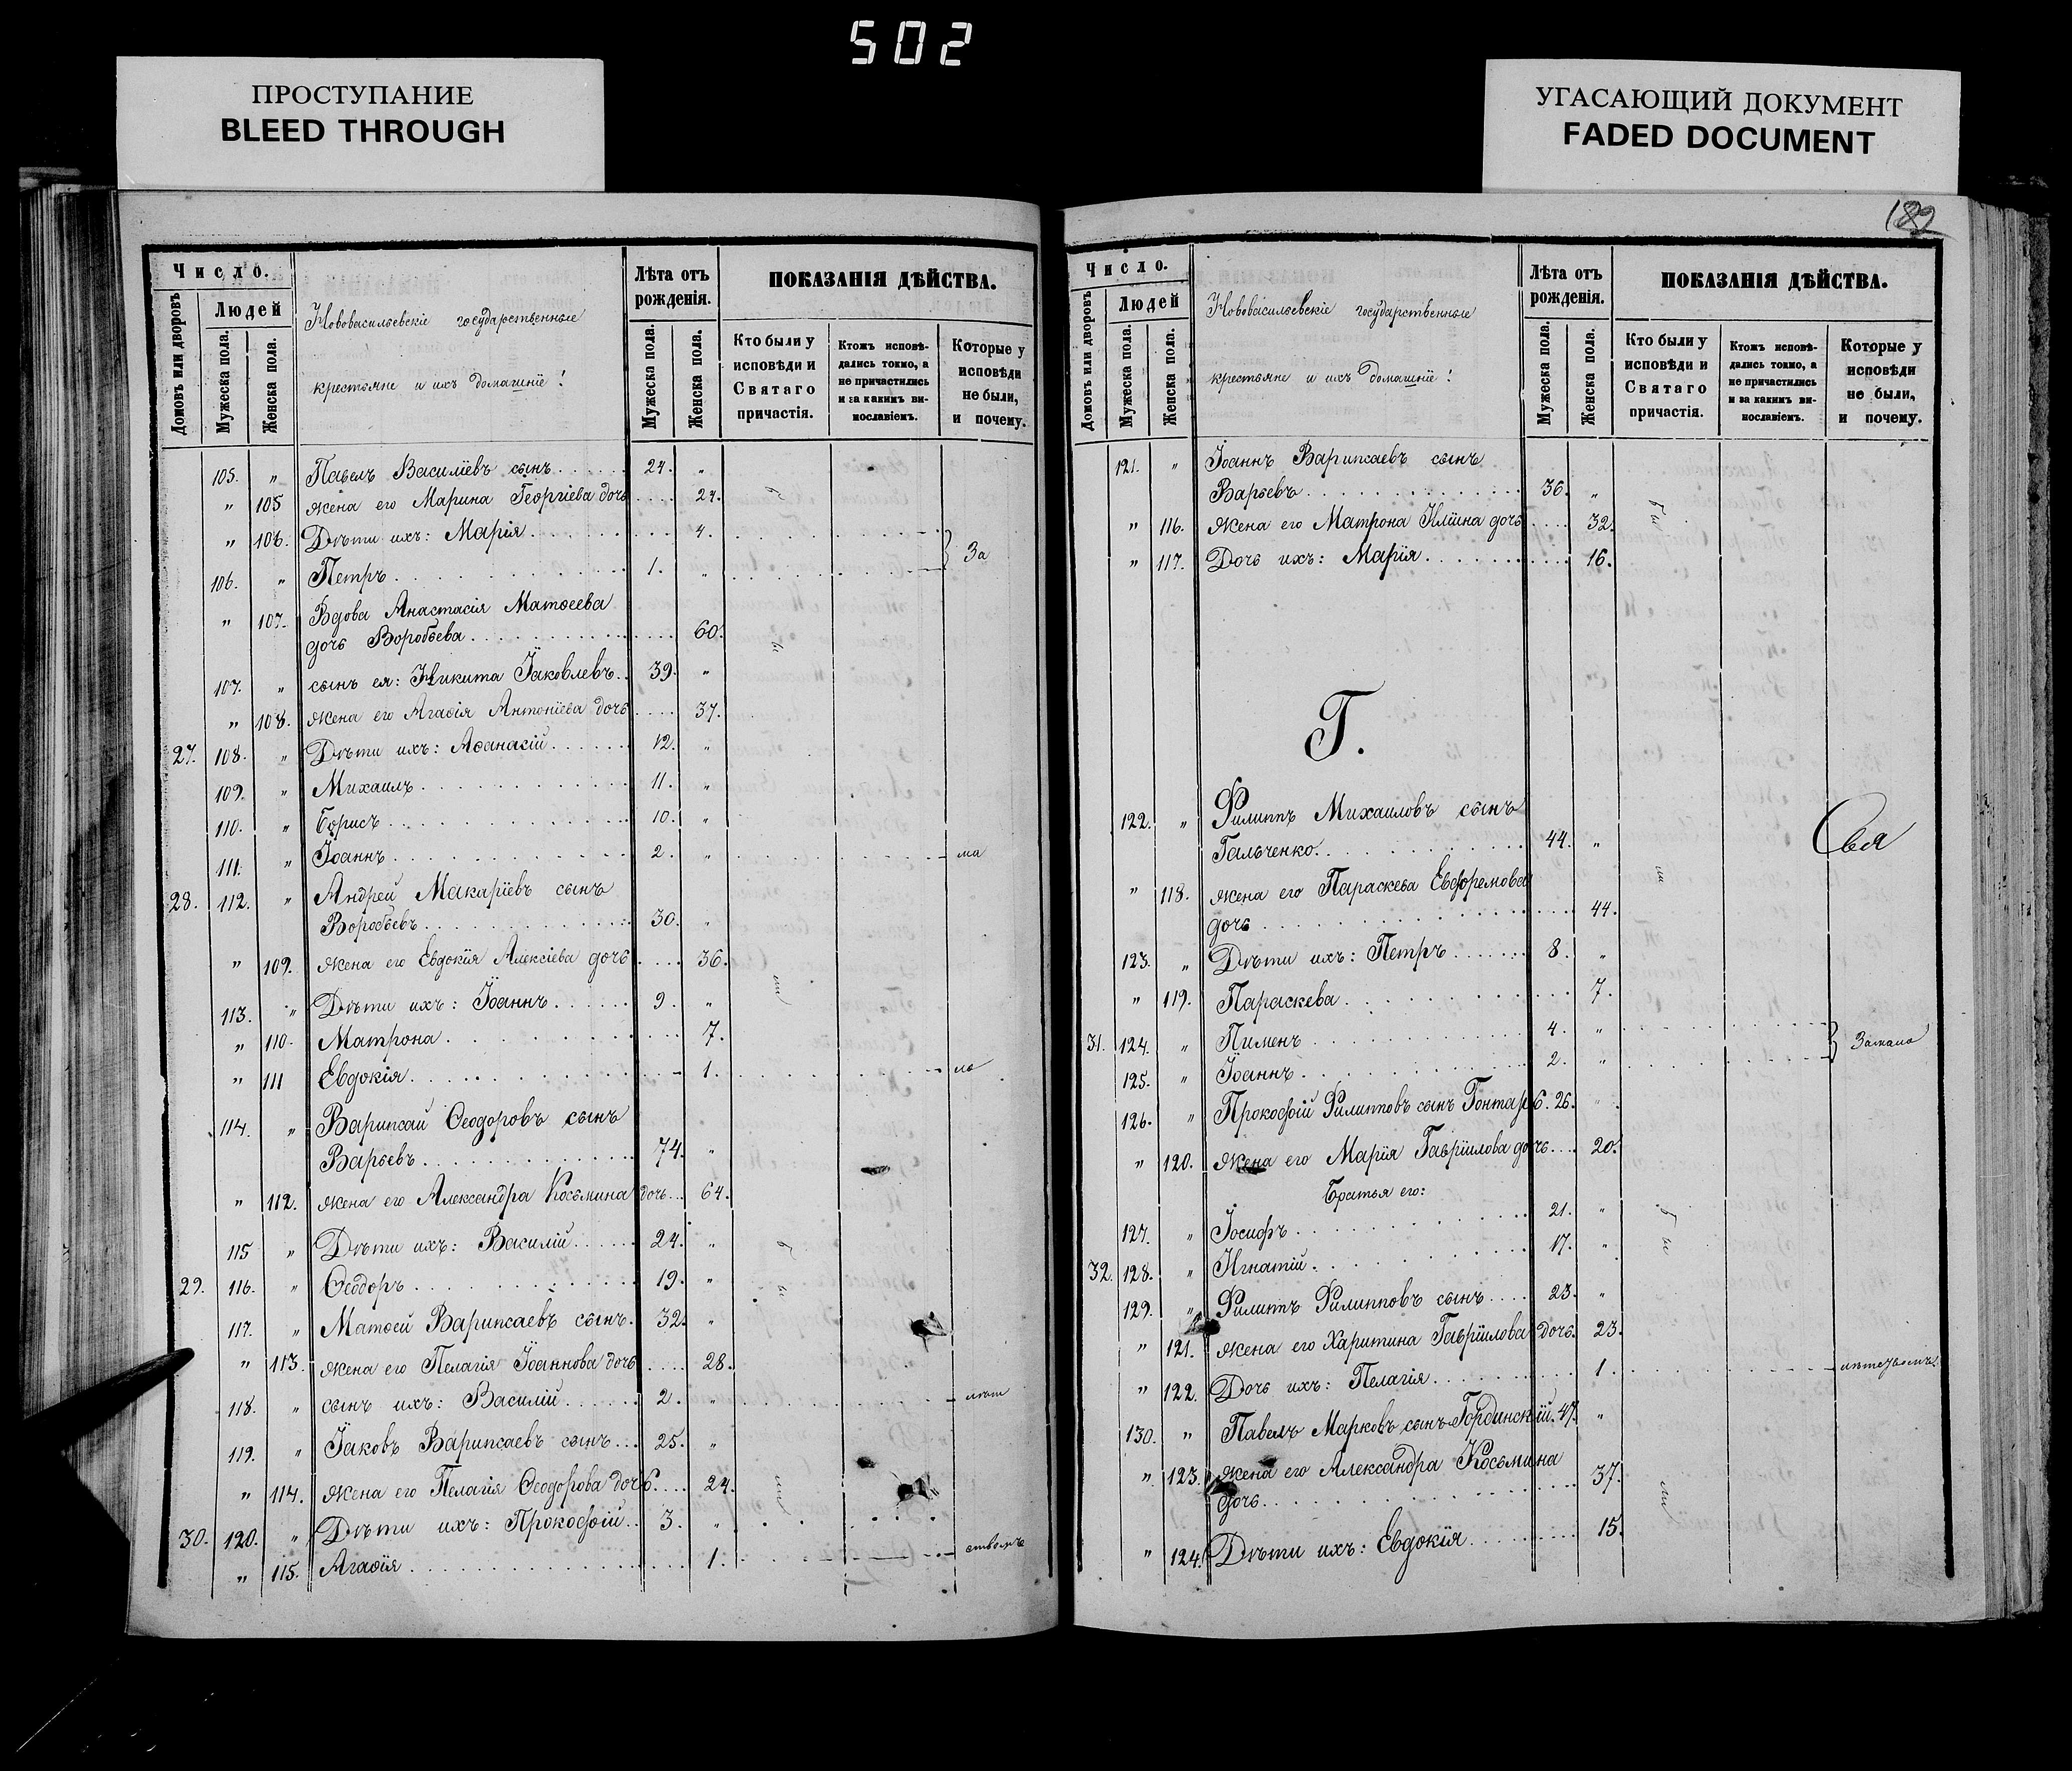 502
ПРОСТУПАНИЕ
BLEED THROUGH
УГАСАЮЩИЙ ДОКУМЕНТ
FADED DOCUMENT
Число.
Людей
Домовъ или дворовъ
Мужеска пола.
Женска пола.
Нововасильевскіе государственные
крестьяне и ихъ домашніе:
Лѣта отъ рожденія.
Мужеска пола.
Женска пола.
ПОКАЗАНІЯ ДѢЙСТВА.
Кто были у исповѣди и Святаго причастія.
Ктожъ исповѣ-дались токмо, а не причастились и за какимъ ви-нославіемъ.
Которые у исповѣди не были, и почему.
105. " Павелъ Василіевъ сынъ 24. "
" 105 жена его Марина Георгіева дочь 24.
" 106. Дѣти ихъ: Марія 4.
106. " Петръ 1. " За
" 107. Вдова Анастасія Матѳеева
дочь Воробьева 60.
107. " сынъ ея: Никита Іаковлевъ 39. "
" 108. жена его Агаѳія Антоніева дочь 37.
27. 108. " Дѣти ихъ: Аѳанасій 12. "
109. " Михаилъ 11. "
110. " Борисъ 10. "
111. " Іоаннъ 2. " ма
28. 112. " Андрей Макаріевъ сынъ
Воробьевъ 30. "
" 109. жена его Евдокія Алексіева дочь 36.
113. " Дѣти ихъ: Іоаннъ 9. "
" 110. Матрона 7.
" 111 Евдокія 1. ло
114. " Варипсай Ѳеодоровъ сынъ
Варьевъ 74. "
" 112. жена его Александра Косьмина дочь 64.
115 " Дѣти ихъ: Василій 24. "
29. 116. " Ѳеодоръ 19. "
117. " Матѳей Варипсаевъ сынъ 32. "
" 113. жена его Пелагія Іоаннова дочь 28.
118. " сынъ ихъ: Василій 2. " лѣт
119. " Іаковъ Варипсаевъ сынъ 25. "
" 114. жена его Пелагія Ѳеодорова дочь 24.
30. 120. " Дѣти ихъ: Прокофій 3. "
" 115. Агаѳія 1. ствомъ
182
Число.
Людей
Домовъ или дворовъ
Мужеска пола.
Женска пола.
Нововасильевскіе государственные
крестьяне и ихъ домашніе:
Лѣта отъ рожденія.
Мужеска пола.
Женска пола.
ПОКАЗАНІЯ ДѢЙСТВА.
Кто были у исповѣди и Святаго причастія.
Ктожъ исповѣ-дались токмо, а не причастились и за какимъ ви-нославіемъ.
Которые у исповѣди не были, и почему.
121. " Іоаннъ Варипсаевъ сынъ
Варьевъ 36. "
" 116. жена его Матрона Иліина дочь 32.
" 117. Дочь ихъ: Марія 16.
Г.
122. " Филиппъ Михаиловъ сынъ
Гальченко 44. "
" 118. жена его Параскева Евфремова
дочь 44.
123. " Дѣти ихъ: Петръ 8. "
" 119. Параскева 7.
31. 124. " Пименъ 4. "
125. " Іоаннъ 2. " Замало
126. " Прокофій Филипповъ сынъ Гонтарь 26. "
" 120. жена его Марія Гавріилова дочь 20.
Братья его:
127. " Іосифъ 21. "
32. 128. " Игнатій 17. "
129. " Филиппъ Филипповъ сынъ 23. "
" 121. жена его Харитина Гавріилова дочь 23.
" 122. Дочь ихъ: Пелагія 1.
130. " Павелъ Марковъ сынъ Гординскій 47. "
" 123. жена его Александра Косьмина
дочь 37.
" 124. Дѣти ихъ: Евдокія 15.